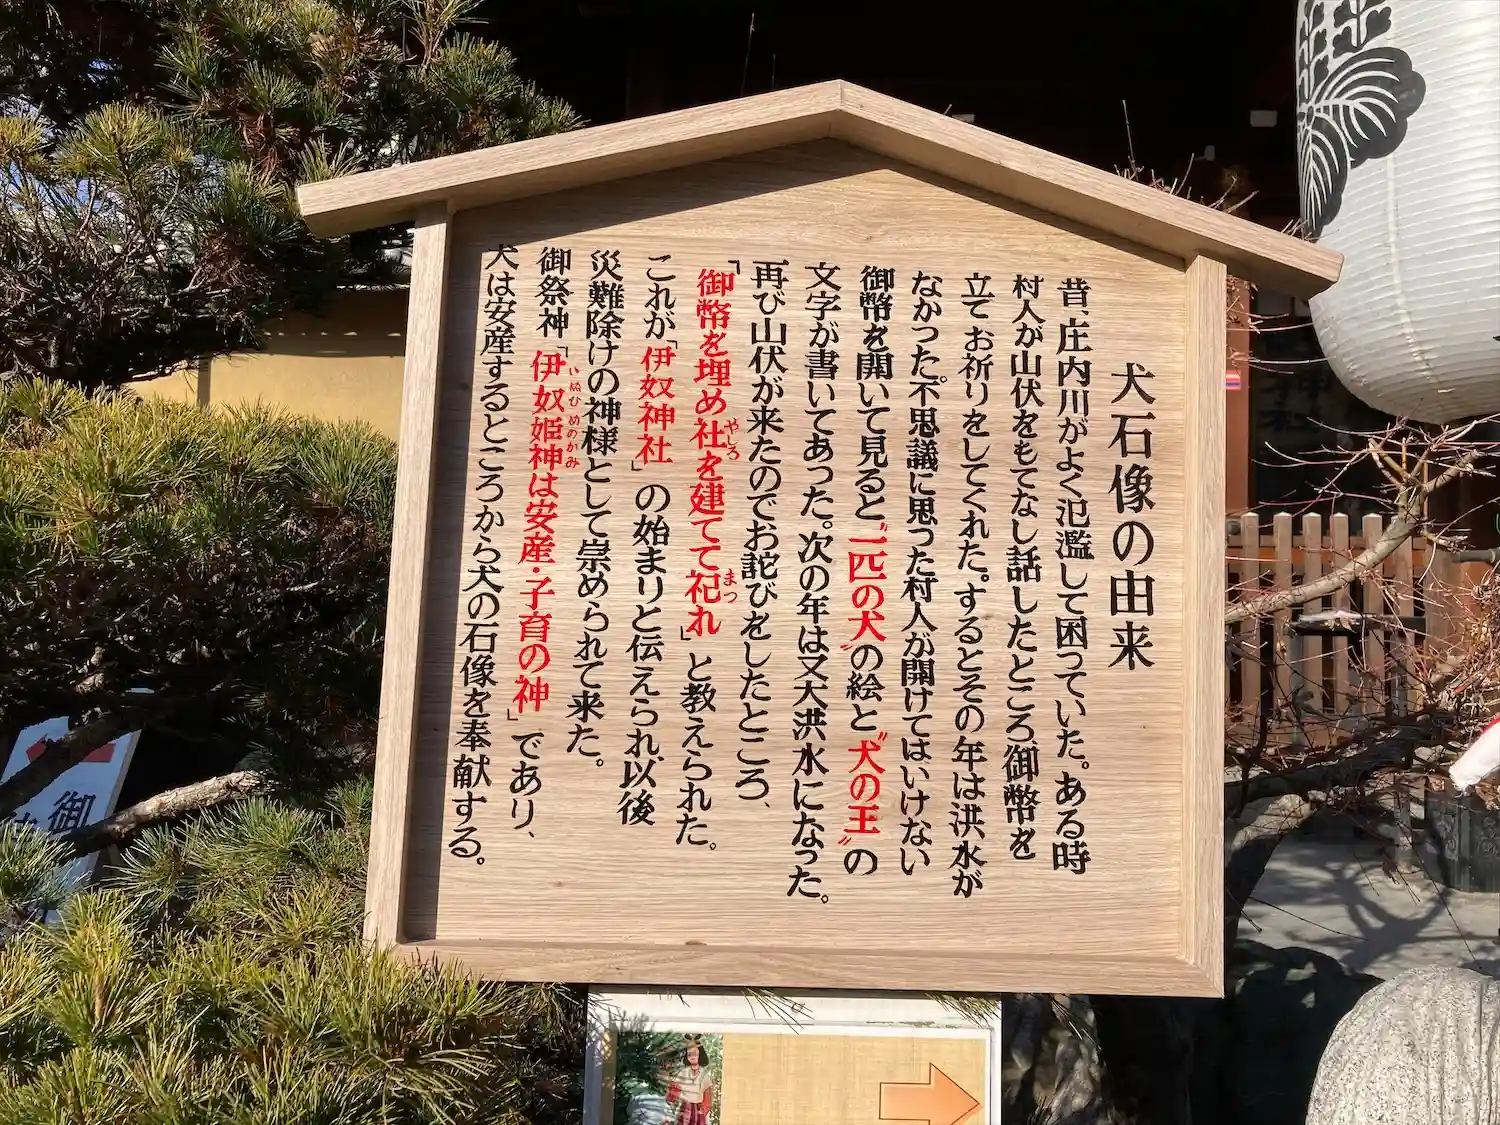 犬石像の由来
昔、庄内川がよく氾濫して困っていた。ある時
村人が山伏をもてなし話したところ、御幣を
立てお祈りをしてくれた。するとその年は洪水が
なかった。不思議に思った村人が開けてはいけない
御幣を開いて見ると〝一匹の犬〟の絵と〝犬の王〟の
文字が書いてあった。次の年は又大洪水になった。
再び山伏が来たのでお詫びをしたところ、
「御幣を埋め社を建てて祀れ」と教えられた。
やしろ
まつ
これが「伊奴神社」の始まりと伝えられ、以後
災難除けの神様として崇められて来た。
御祭神「伊奴姫神は安産・子育の神」であり、
いぬひめのかみ
犬は安産するところから犬の石像を奉献する。
御